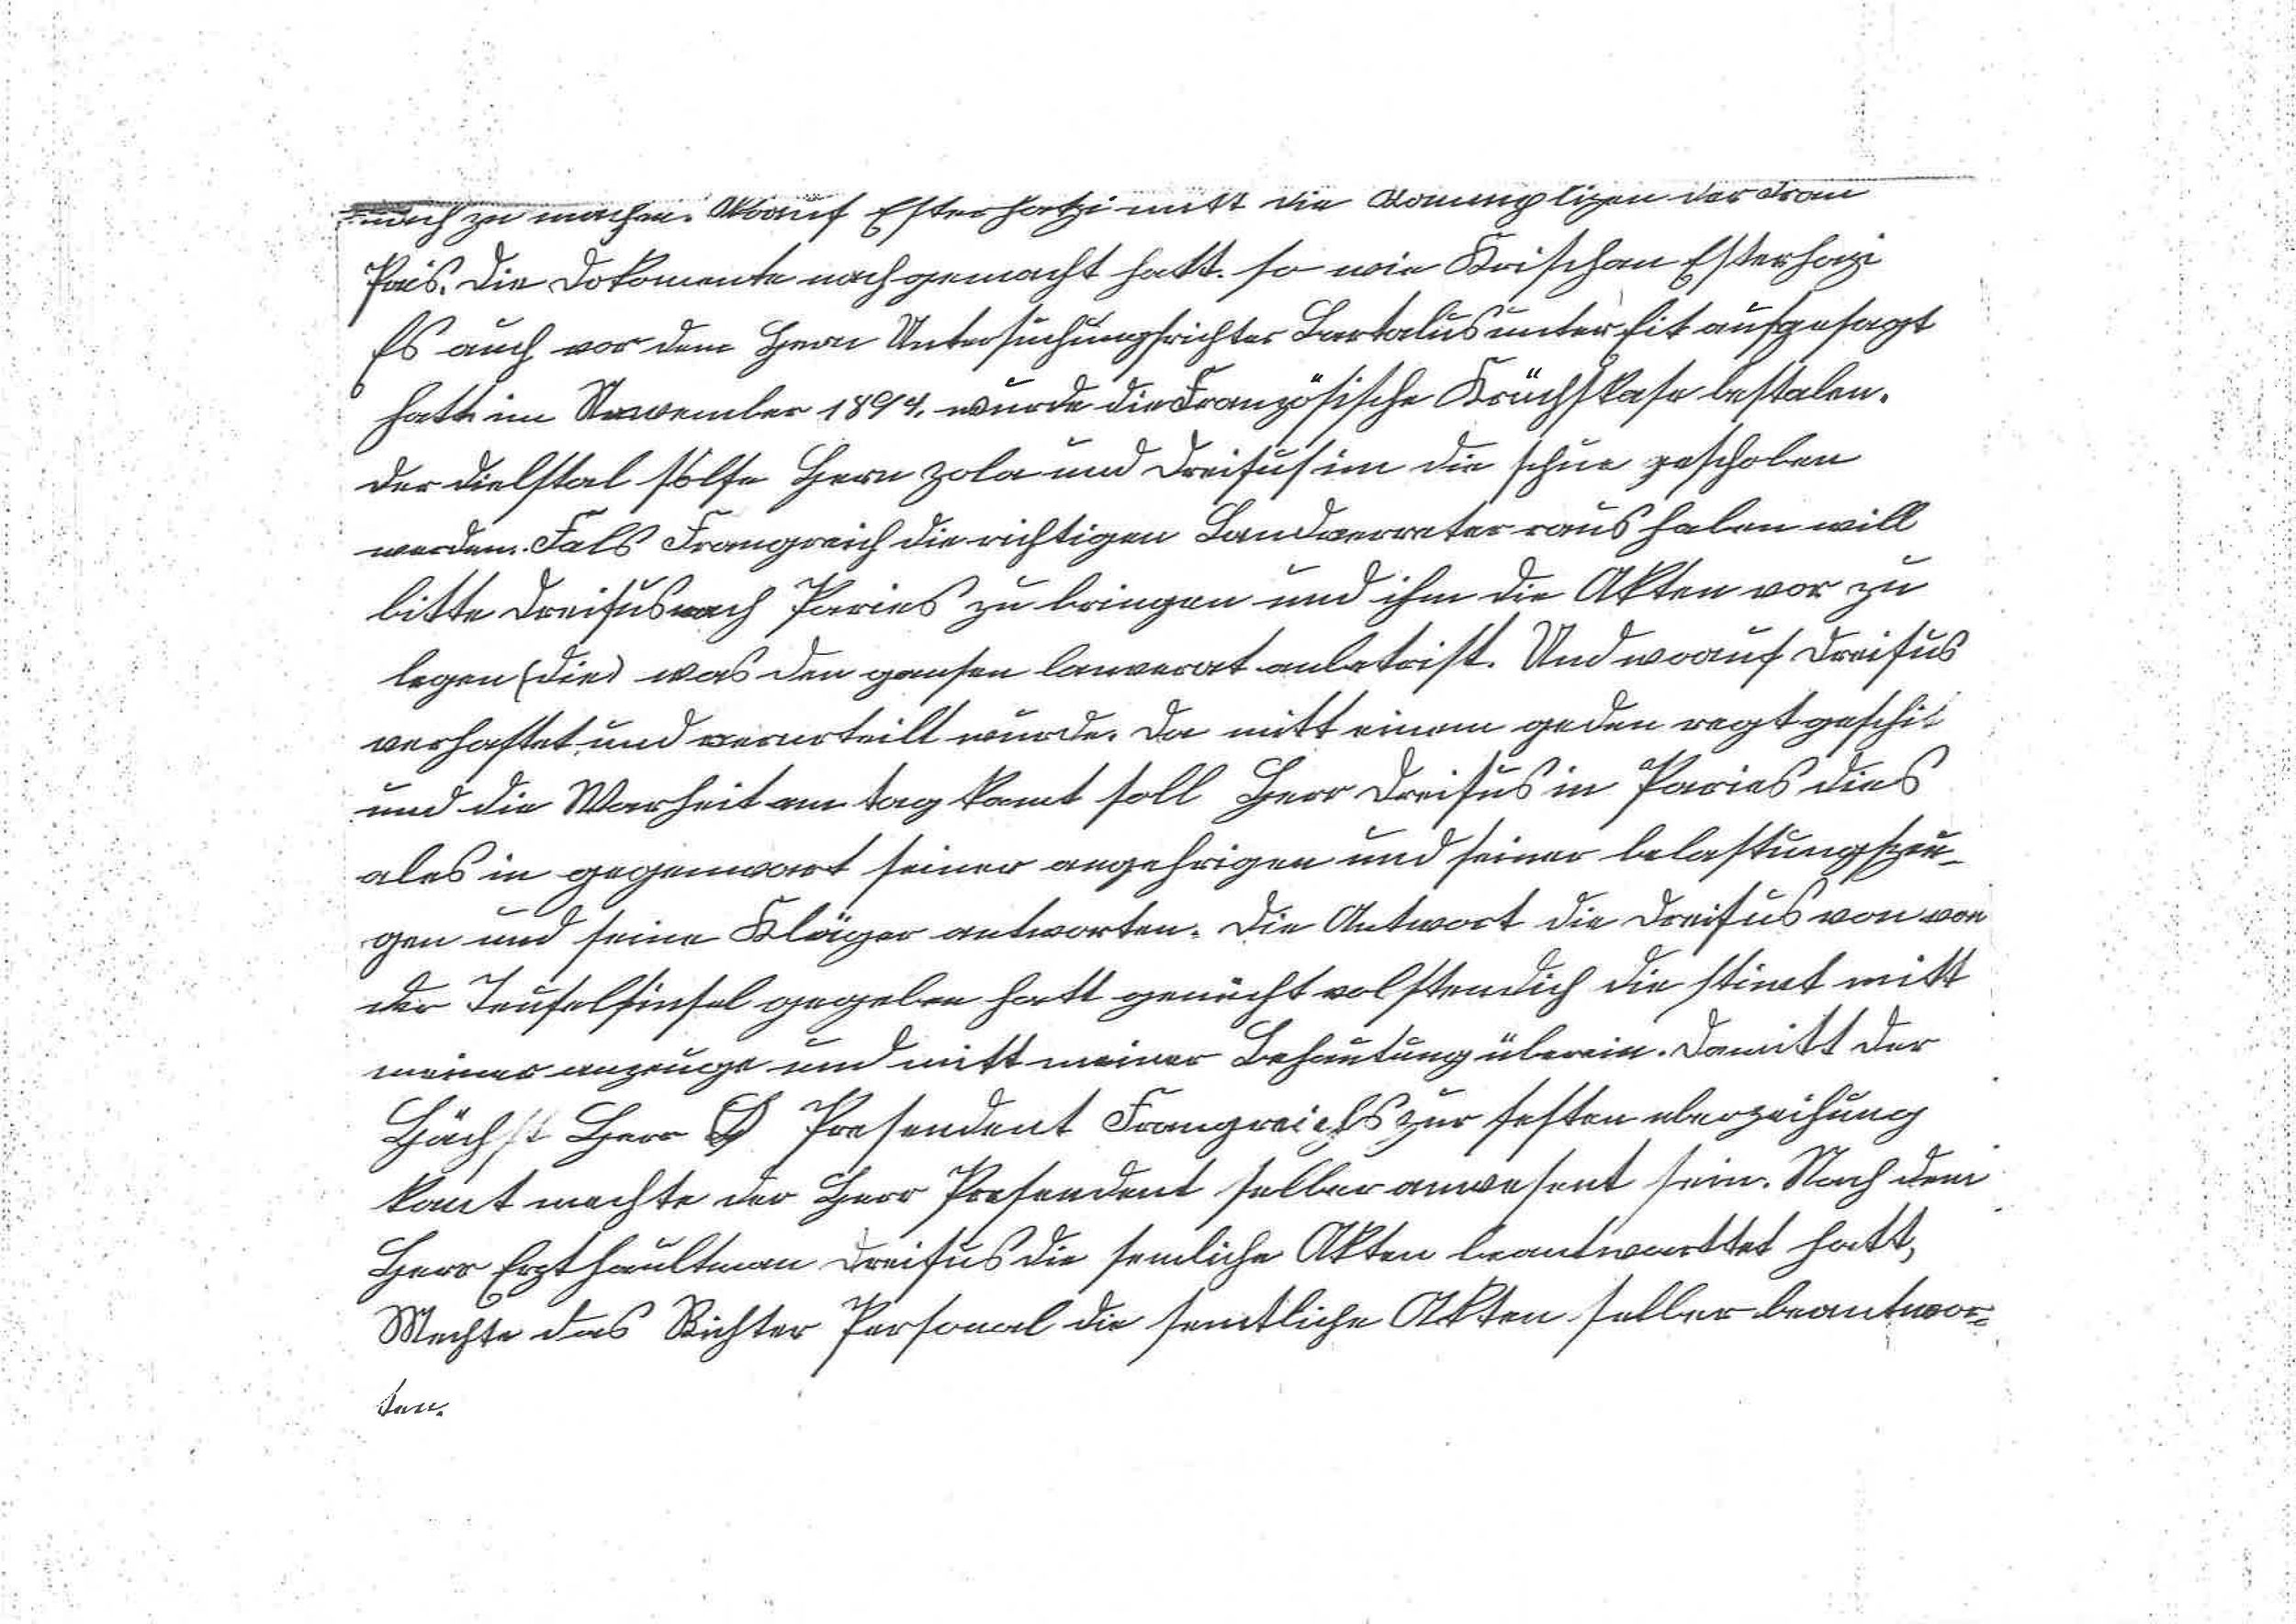 nach zu machen. Worauf Esterhatzi mitt die Kommplizen der Frau
Païs. die Dokomente nachgemacht hatt. so wie Krischan Esterhazi
Es auch vor dem Hern Untersuchungsrichter Bartalus unter Eit ausgesagt
hatt im November 1894. wurde die Französische Krüchskase bestalen.
der dielstal solte Hern Zola und Dreifus im die schue geschoben
werden. Fals Frangreich die richtigen Landverreter raus haben will
bitte Dreifus nach Paries zu bringen und ihm die Akten vor zu
legen (die) was den gansen lanverat anbetrift. Und worauf Dreifus
verhaftet und verurteilt wurde. Da mitt einem geden regt geschit
und die Warheit am tag komt soll Herr Dreifus in Paries dies
ales in gegenwart seiner angehrigen und seiner belastungszeu-
gen und seine Kläger antworten. Die Antwort die Dreifus von von
der Teufelsinsel gegeben hatt genücht volstendich die stimt mitt
meiner anzeuge und mitt meiner Behautung überein. Damitt der
Hächst Herr Presendent Frangreichs zur festen uberzeihung
komt mechte der Herr Presendent selber anwesent sein. Nach dem
Herr Erzthaultman Dreifus die semliche Akten beantworttet hatt,
Mechte das Richter Personal die semtliche Akten selber beantwor-
ten.